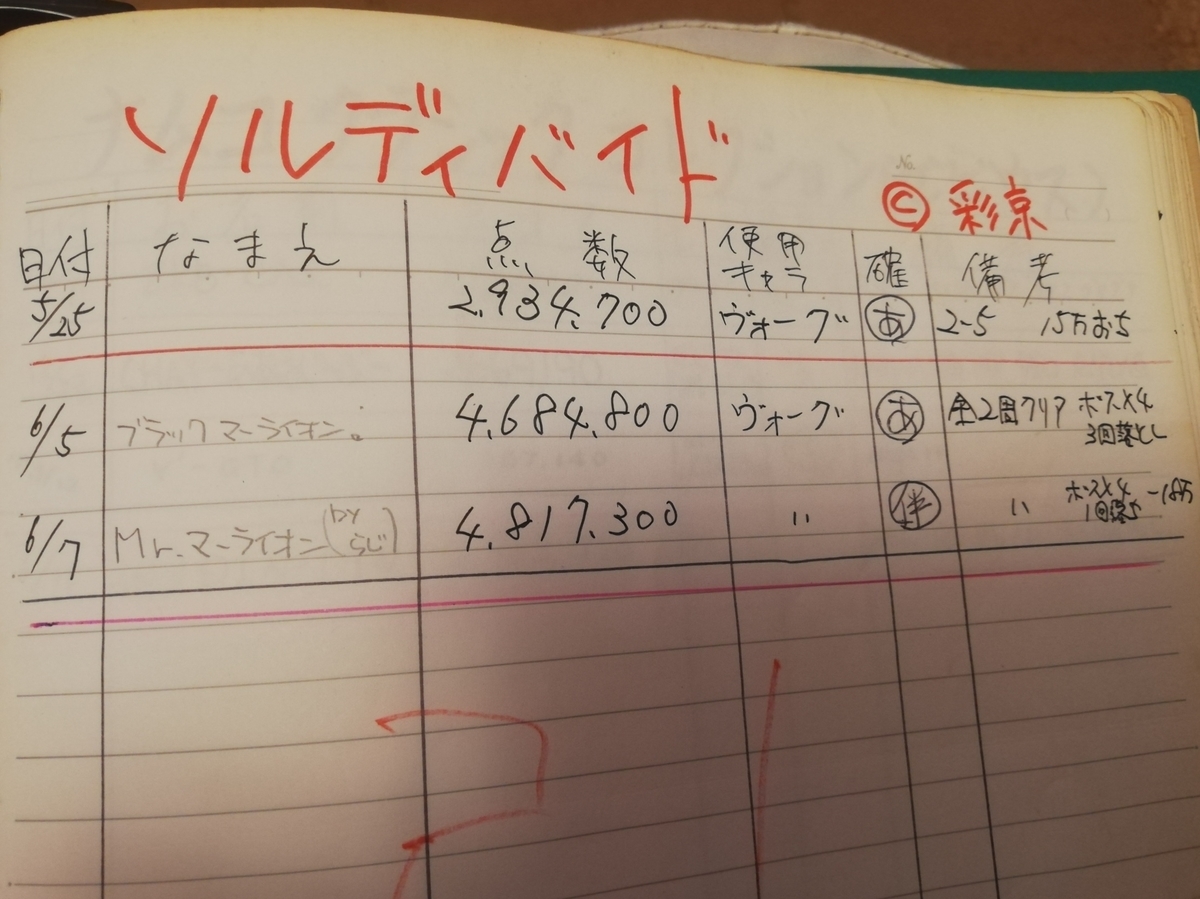 ソルディバイド
No.
© 彩京
日付 なまえ 点数 使用キャラ 確 備考
5/25 2,934,700 ヴォーグ あ 2-5 15万おち
6/5 ブラックマーライオン。 4,684,800 ヴォーグ あ 全2周クリア ボスメ4 3回落とし
6/7 Mr.マーライオン(by らじ) 4,817,300 〃 伴 〃 ボスメ4 1回落ち -18万